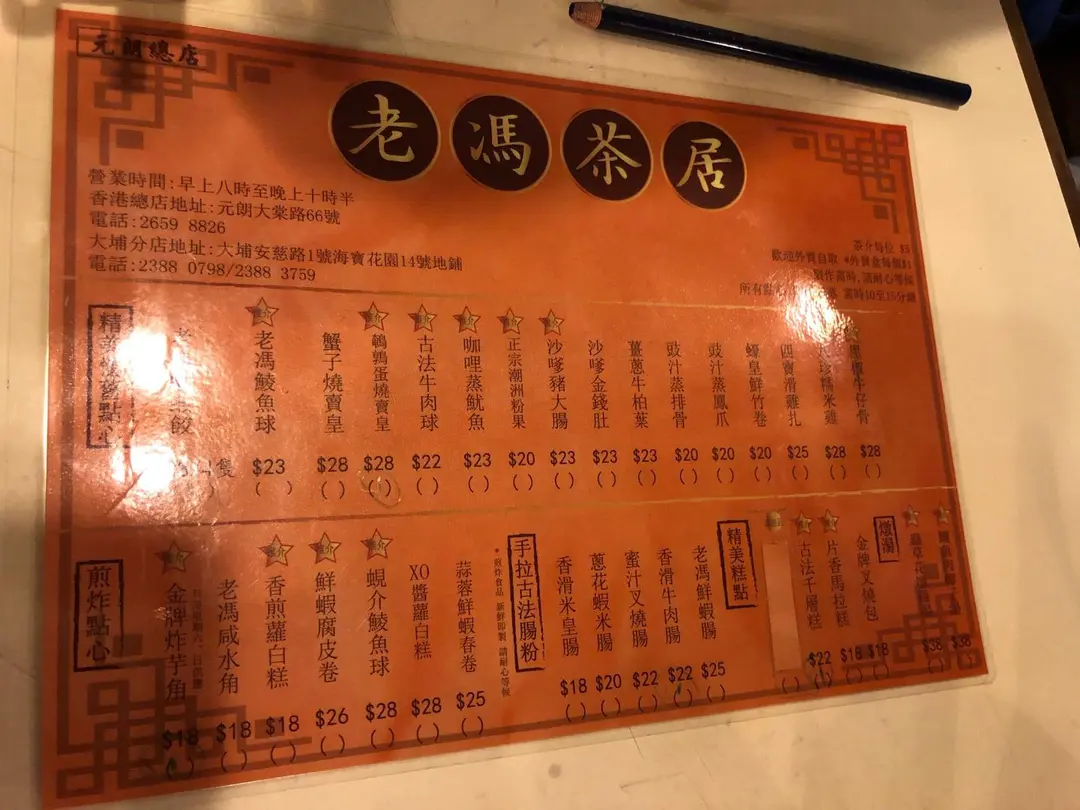 元朗總店
老馮茶居
營業時間:早上八時至晚上十時半
香港總店地址:元朗大棠路66號
電話:2659 8826
大埔分店地址:大埔安慈路1號海寶花園14號地鋪
電話:2388 0798/2388 3759
茶介每位 15
歡迎外賣自取 *外賣盒每個$1
製作需時,請耐心等候
所有點心 需時10至15分鐘
精美蒸籠點心
餃 隻
老馮鯪魚球 $23 ( )
蟹子燒賣皇 $28 ( )
新 鵪鶉蛋燒賣皇 $28 ( )
新 古法牛肉球 $22 ( )
新 咖哩蒸魷魚 $23 ( )
新 正宗潮洲粉果 $20 ( )
新 沙嗲豬大腸 $23 ( )
沙嗲金錢肚 $23 ( )
薑蔥牛柏葉 $23 ( )
豉汁蒸排骨 $20 ( )
豉汁蒸鳳爪 $20 ( )
蠔皇鮮竹卷 $20 ( )
四寶滑雞扎 $25 ( )
珍糯米雞 $28 ( )
黑椒牛仔骨 $28 ( )
煎炸點心
新 金牌炸芋角 $18 ( )
老馮咸水角 $18 ( )
新 香煎蘿白糕 $18 ( )
新 鮮蝦腐皮卷 $26 ( )
新 蜆介鯪魚球 $28 ( )
XO醬蘿白糕 $28 ( )
蒜蓉鮮蝦春卷 $25 ( )
*煎炸食品 新鮮即製 請耐心等候
手拉古法腸粉
香滑米皇腸 $18 ( )
蔥花蝦米腸 $20 ( )
蜜汁叉燒腸 $22 ( )
香滑牛肉腸 $22 ( )
老馮鮮蝦腸 $25 ( )
精美糕點
( )
新 古法千層糕 $22 ( )
新 片香馬拉糕 $18 ( )
金牌叉燒包 $18 ( )
燉湯
蟲草花 $38 ( )
$38 ( )